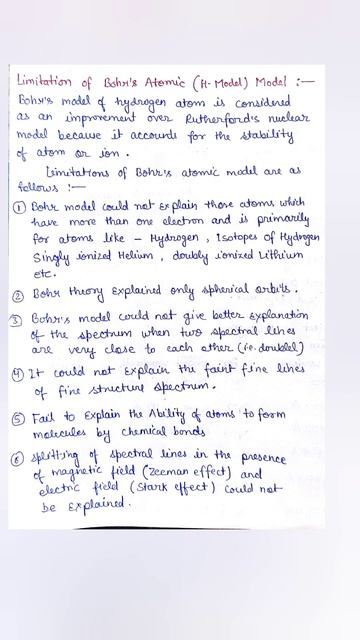 Limitation of Bohr's Atomic (H-Model) Model :—
Bohr's model of hydrogen atom is considered
as an improvement over Rutherford's nuclear
model because it accounts for the stability
of atom or ion.
Limitations of Bohr's atomic model are as
follows :—
① Bohr model could not explain those atoms which
have more than one electron and is primarily
for atoms like - Hydrogen, Isotopes of Hydrogen
Singly ionized Helium, doubly ionized Lithium
etc.
② Bohr theory Explained only spherical orbits.
③ Bohr's model could not give better explanation
of the spectrum when two spectral lines
are very close to each other (i.e. doublet)
④ It could not explain the faint fine lines
of fine structure spectrum.
⑤ Fail to Explain the Ability of atoms to form
molecules by chemical bonds
⑥ splitting of spectral lines in the presence
of magnetic field (Zeeman effect) and
electric field (Stark effect) could not
be explained.